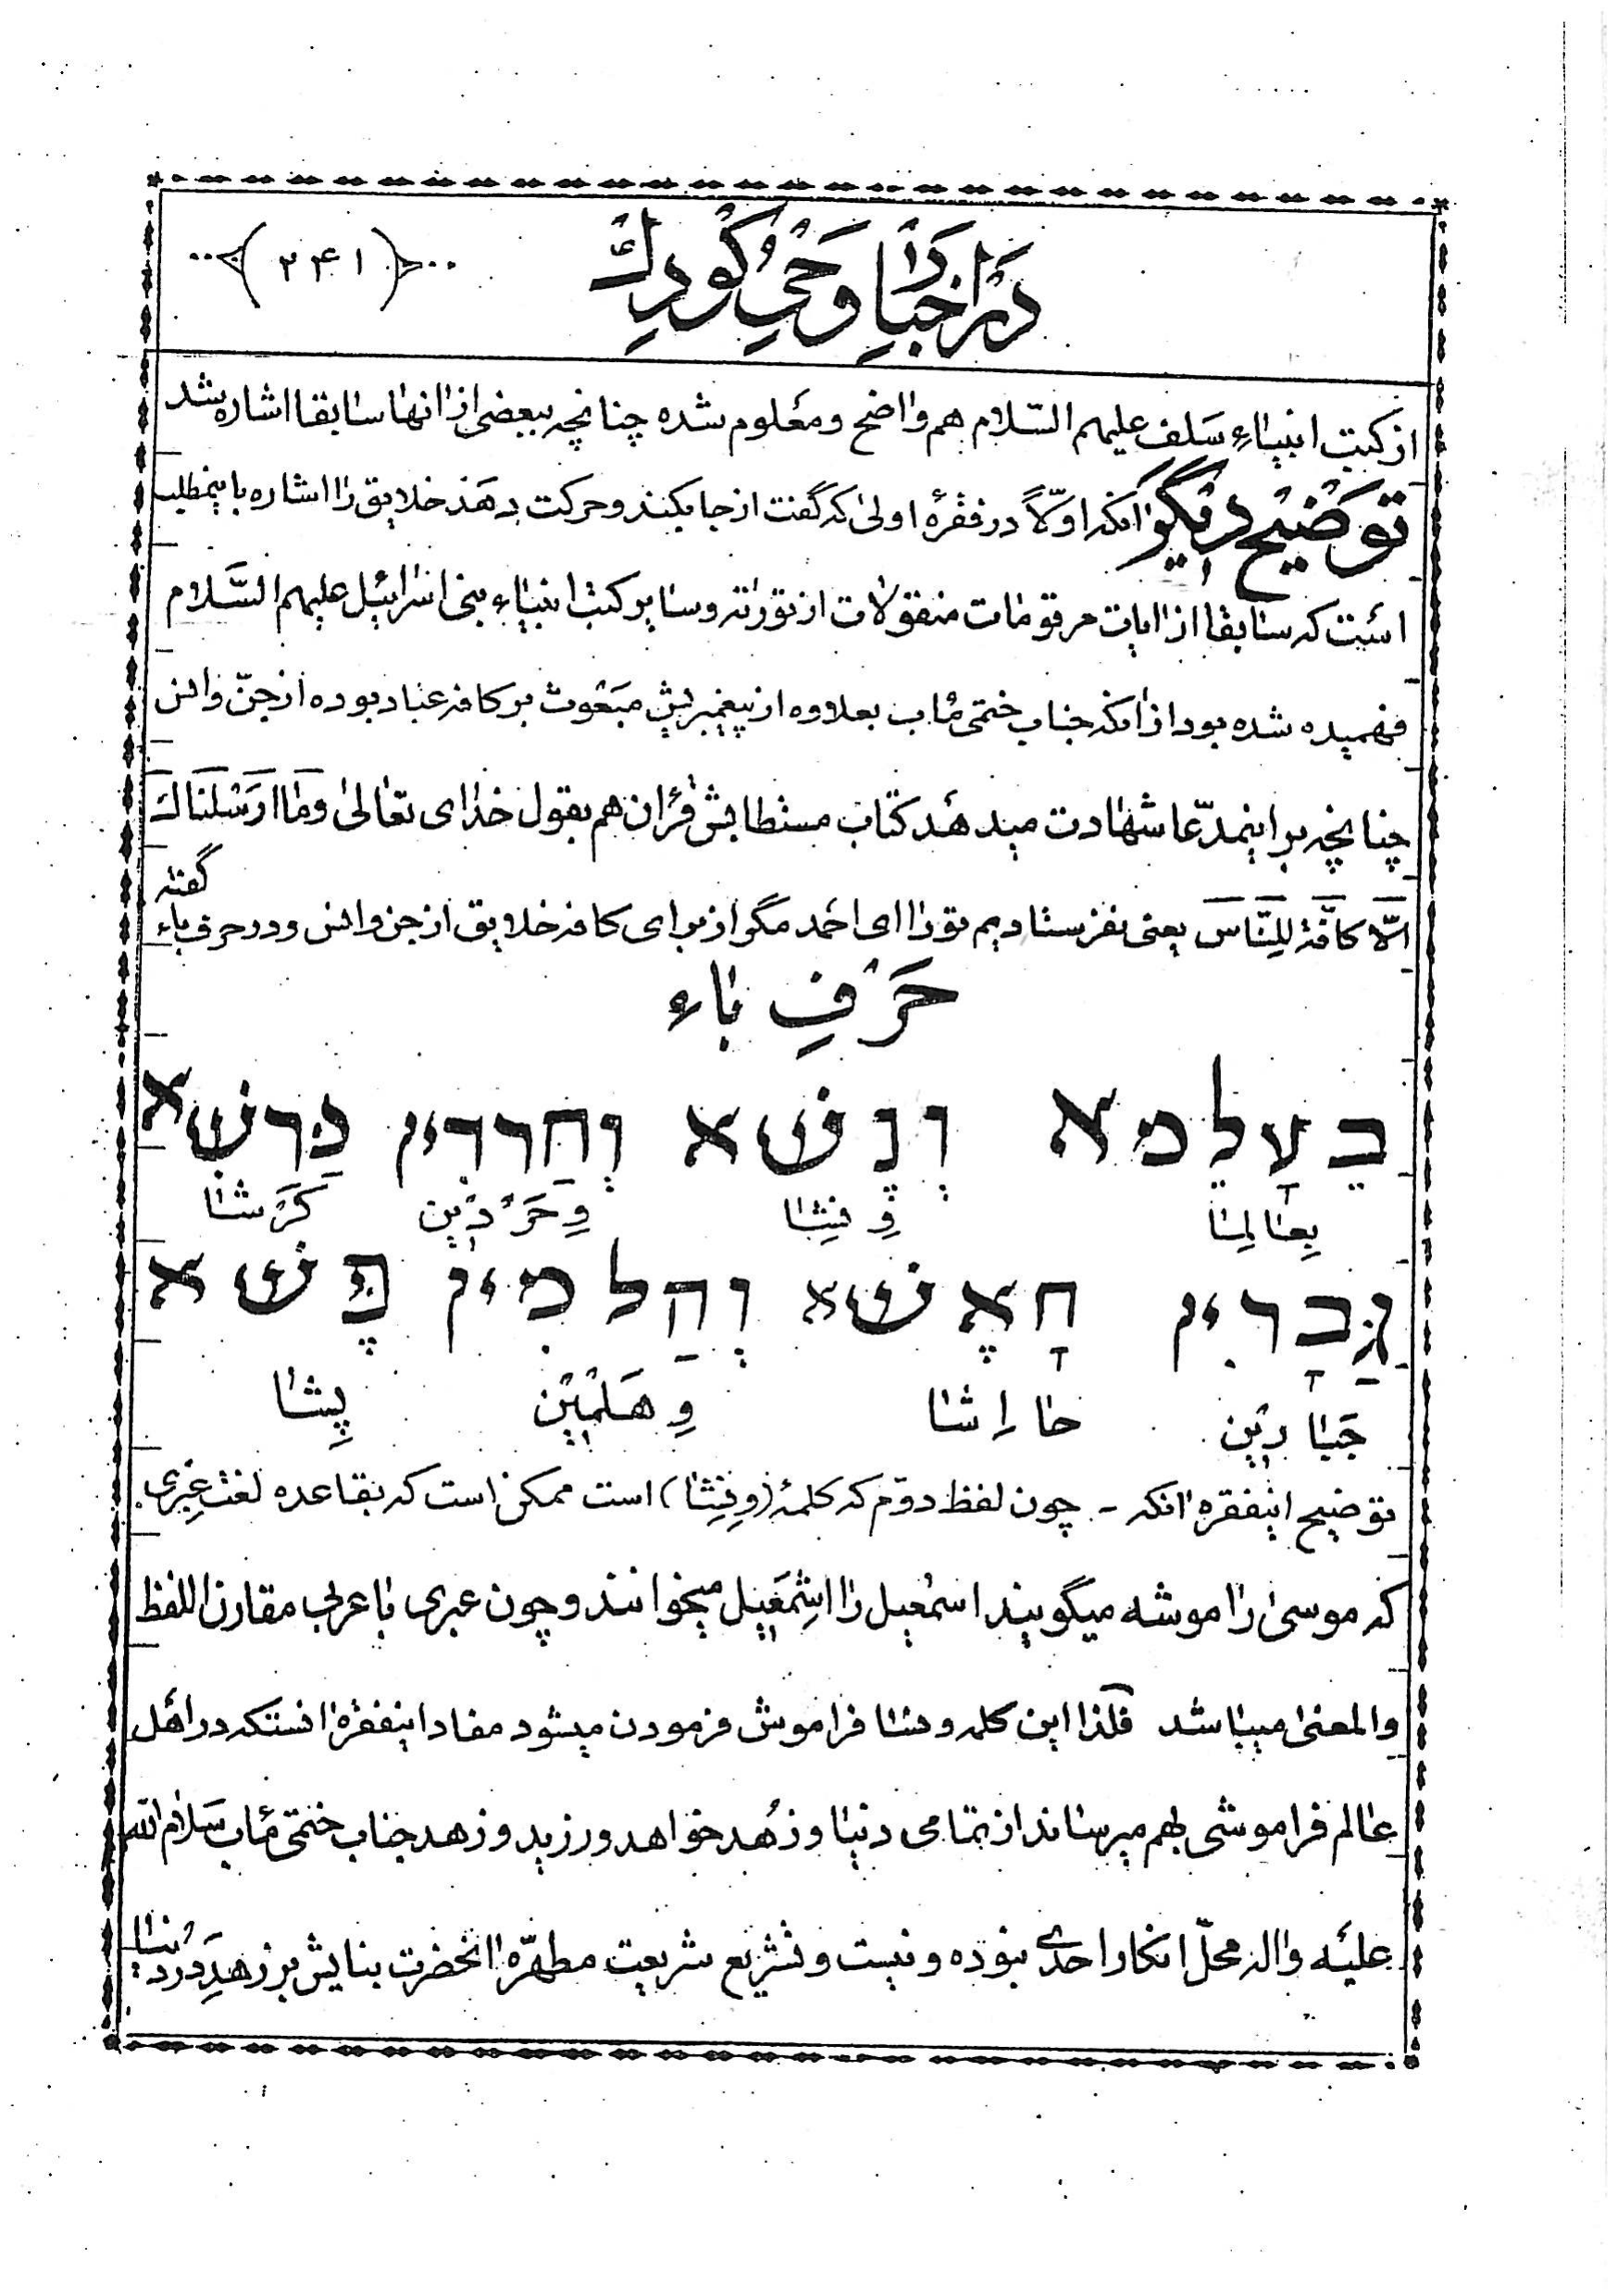 در اخبار وحی کودک
(۲۴۱)
از کتب انبیاءِ سَلف علیهم السّلام هم واضح ومعلوم شده چنانچه ببعضی از انها سابقا اشاره شد
توضیح دیگر انکه اوّلاً در فقرهٔ اولیٰ که گفت از جا بکند و حرکت دهد خلایق را اشاره باینمطلب
است که سابقا از ایات مرقومات منقولات از توریة وسایر کتب انبیاء بنی اسرائیل علیهم السَّلام
فهمیده شده بود از انکه جناب ختمی مٔاب بعلاوه از پیغمبریش مبعوث بر کافه عباد بوده از جنّ وانس
چنانچه بر اینمدّعا شهادت میدهد کتاب مستطابش قرٰان هم بقول خدای تعالیٰ وَمٰا اَرْسَلْنٰاكَ
اِلّا کافَّة لِلنّٰاسَ یعنی نفرستادیم تو را ای احمد مگر از برای کافه خلایق از جن وانس ودر حرف باء گفته
حَرْفِ بٰاء
בְּעָלְמָא וְנְשָׁא וְחַרדִין כַּרְשָׁא
بِعٰالِمٰا وِ نِشٰا وِحَرْدٖین کَرَشٰا
גַּבָרִין חָאָשָׁא וְהַלְמִין פָּשָׁא
جَبٰارٖین حٰا رٰا شٰا وِ هَلْمٖیْن پِشٰا
توضیح اینفقره انکه - چون لفظ دوّم که کلمهٔ (وِنِشٰا) است ممکن است که بقاعده لغت عِبْری
که موسیٰ را موشه میگویند اسمٰعیل را اشِمَعیل میخوانند و چون عبری با عربی مقارن اللفظ
والمعنیٰ میباشد فلذا این کلمه ونشا فراموش فرمودن میشود مفاد اینفقره انستکه در اهل
عالم فراموشی بهم میرساند از تمامی دنیا و زُهد خواهد ورزید و زهد جناب ختمی مٔاب سَلامُ الله
علیَه واله محلّ انکار احدی نبوده و نیست و تشریع شریعت مطهّرهٔ انحضرت بنایش بر زهدِ در دُنیا